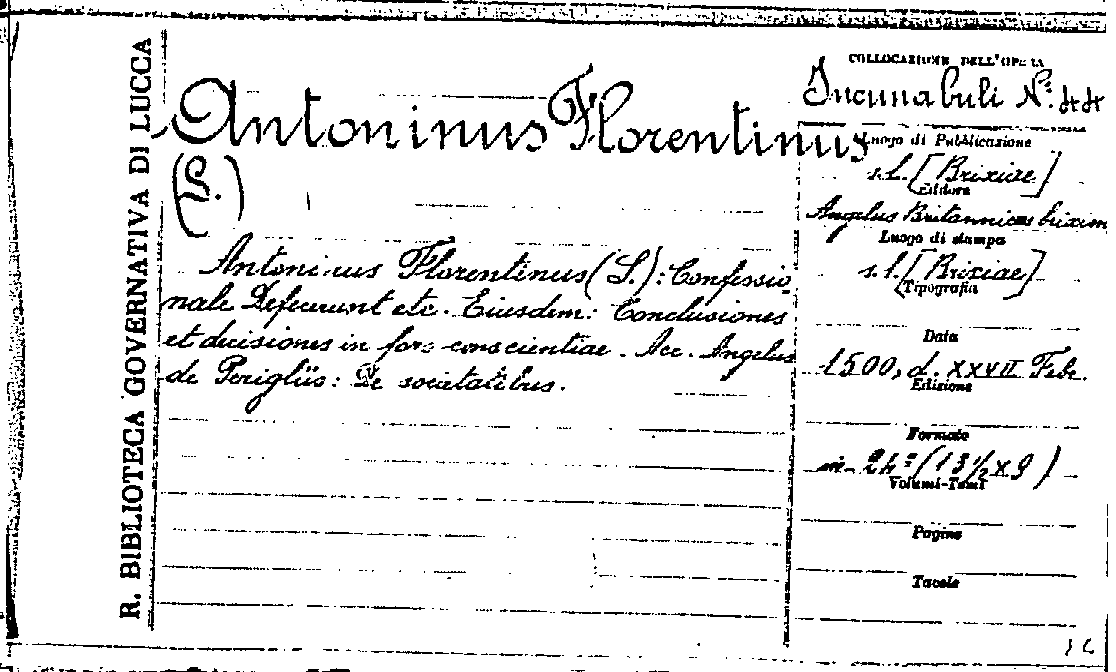 R. BIBLIOTECA GOVERNATIVA DI LUCCA
Antoninus Florentinus
(S.)
Antoninus Florentinus (S.): Confessio-
nale Defecerunt etc. Eiusdem: Conclusiones
et decisiones in foro conscientiae. Acc. Angelus
de Periglüs: De societatibus.
COLLOCAZIONE DELL'OPERA
Incunabuli N.: 44
Luogo di Pubblicazione
s.l. [Brixiae]
Editore
Angelus Britannicus brixien
Luogo di stampa
s.l. [Brixiae]
Tipografia
Data
1500, d. XXVII Febr.
Edizione
Formato
in-24º (13½ x 9)
Volumi-Tomi
Pagine
Tavole